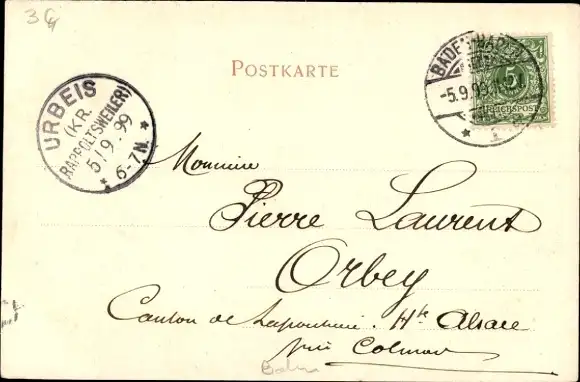 POSTKARTE
BADEN-BADEN
-5.9.99
1
5
REICHSPOST
URBEIS
(KR.
RAPPOLTSWEILER)
5/9.99
* 6-7N. *
Monsieur
Pierre Laurent
Orbey
Canton de Lapoutroie. Hte Alsace
près Colmar